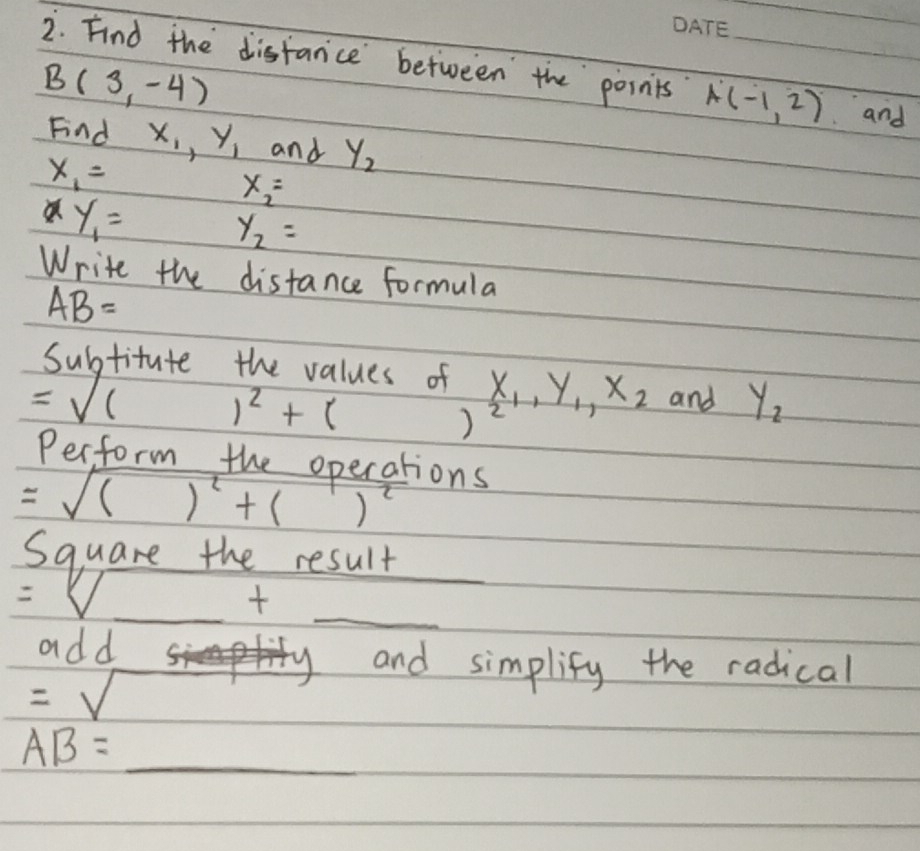 DATE
2. Find the distance between the points A(-1, 2) and
B(3, -4)
Find X₁, Y₁ and Y₂
X₁ = X₂ =
Y₁ = Y₂ =
Write the distance formula
AB =
Subtitute the values of X₁, Y₁, X₂ and Y₂
= √( )² + ( )²
Perform the operations
= √( )² + ( )²
Square the result
= √____ + ____
add simplify and simplify the radical
= √
AB = ____